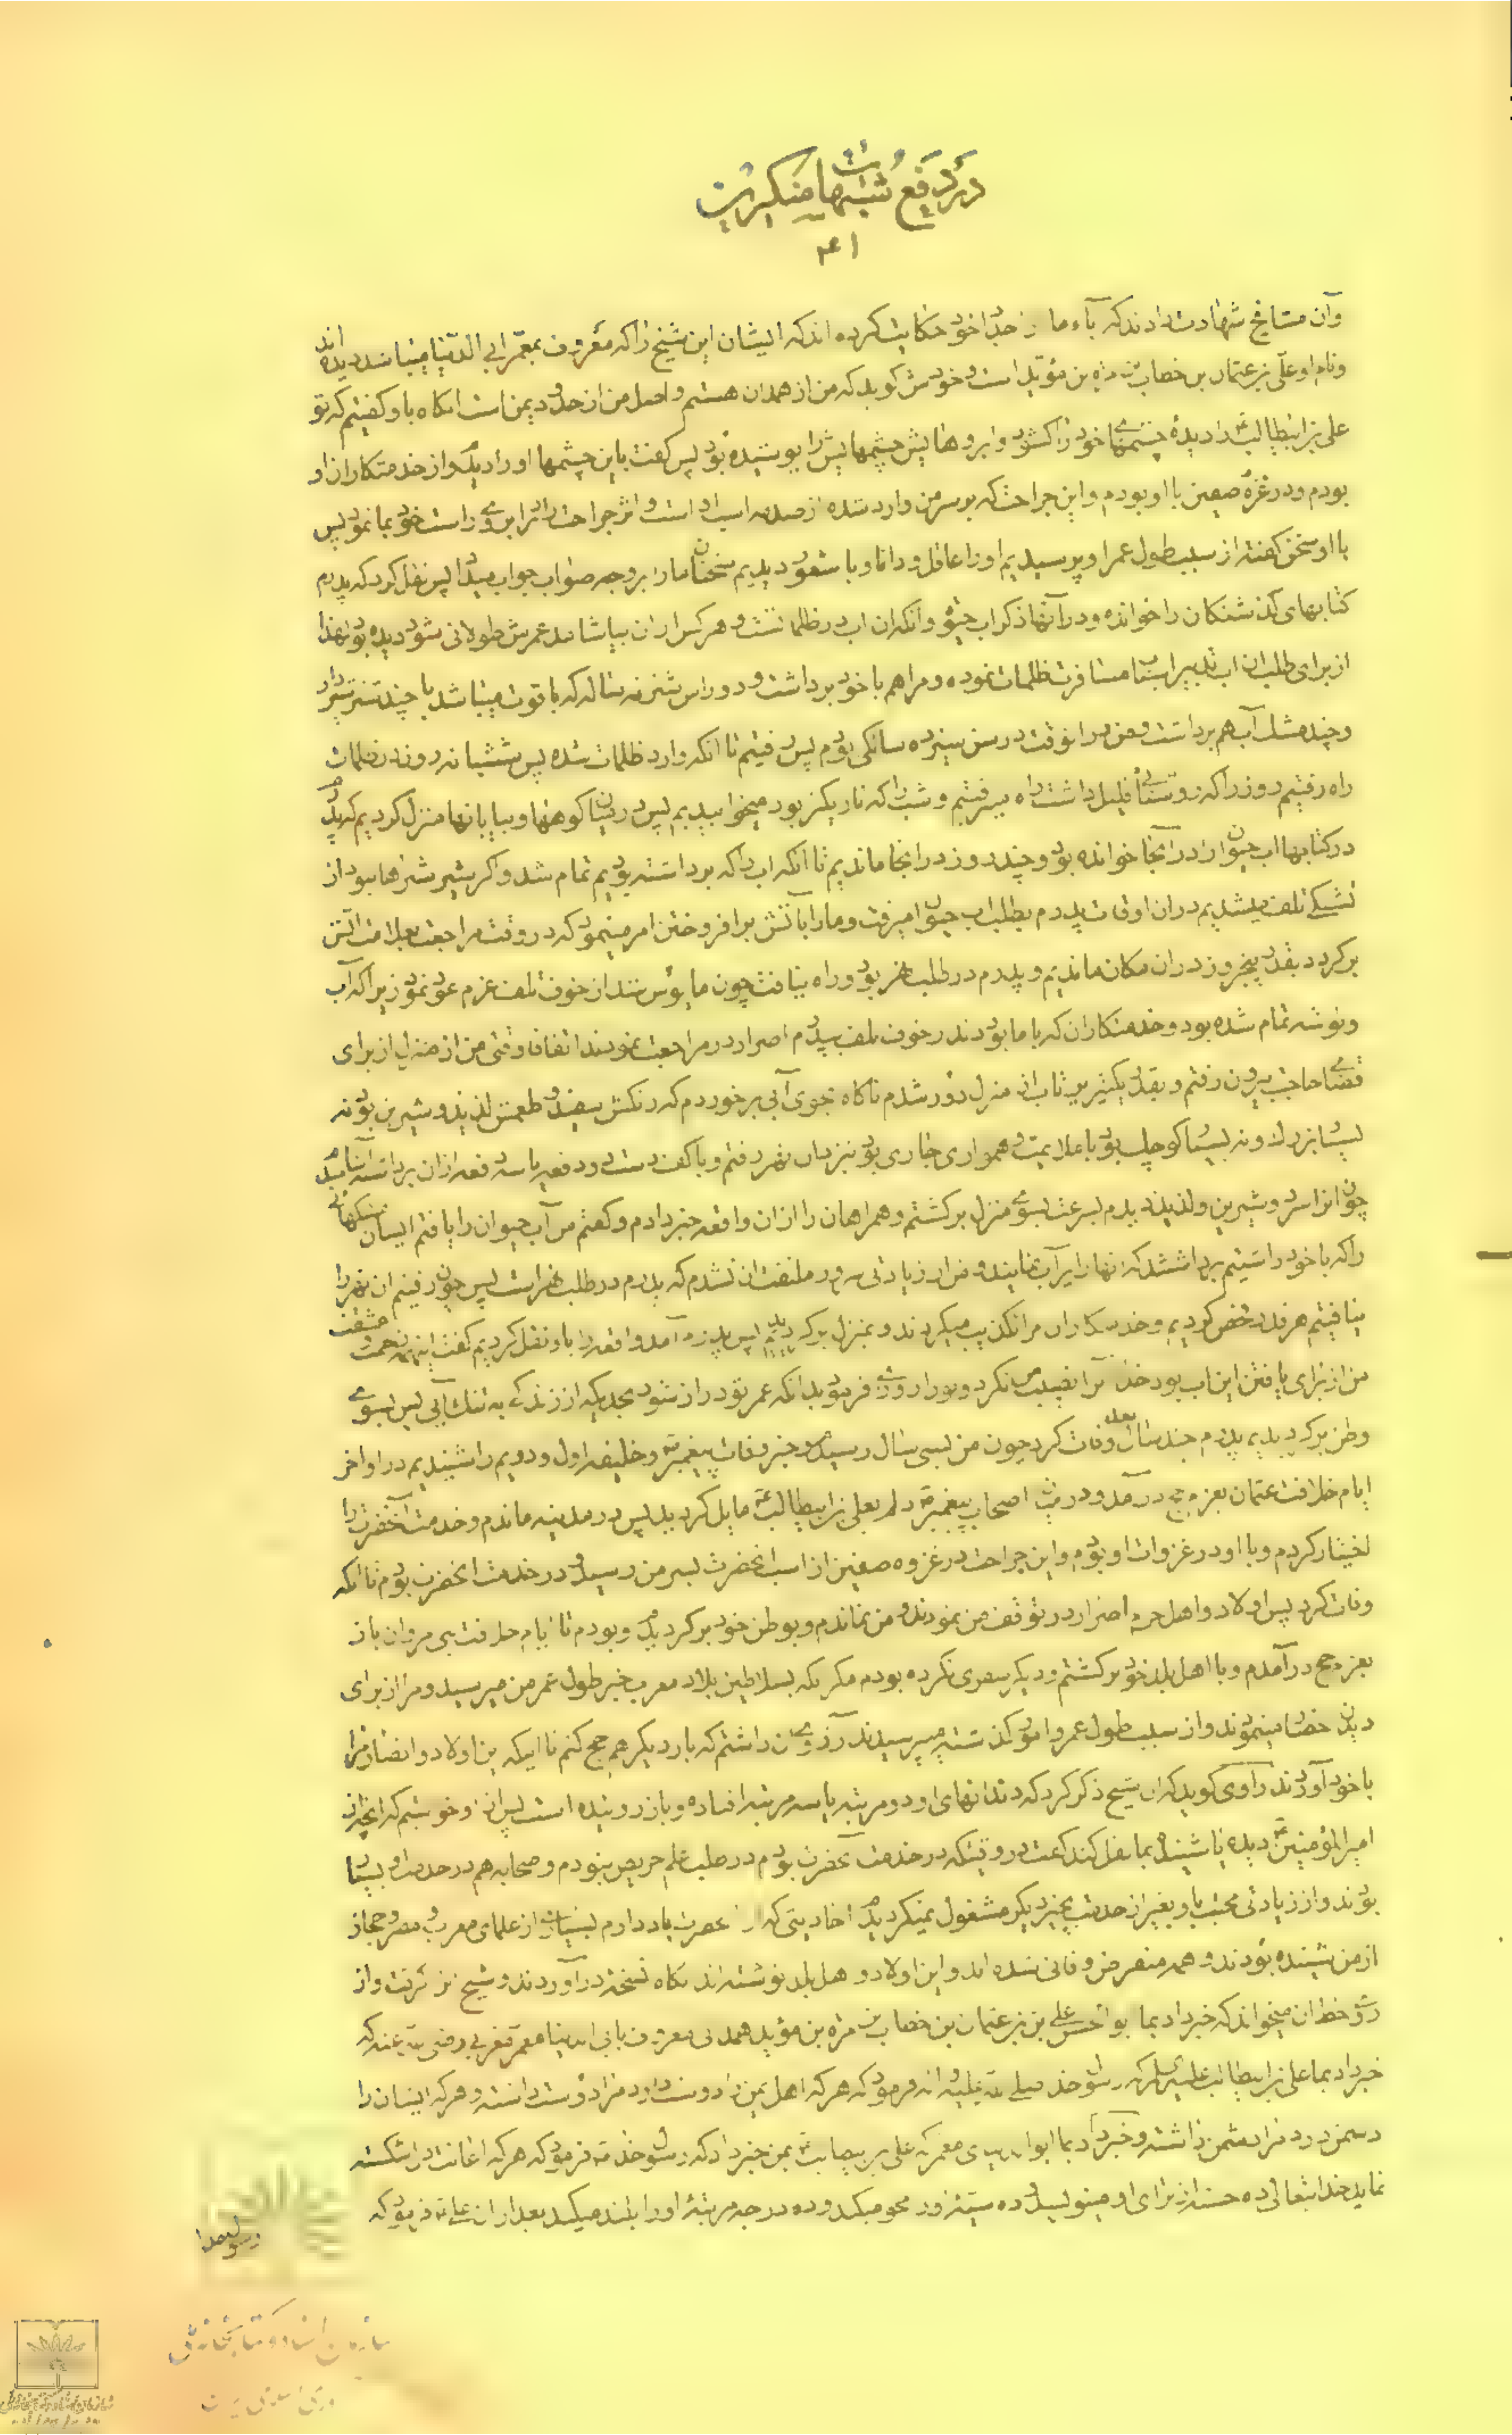 در دفع شبهات منکرین
۴۱
وآن مشایخ شهادت دادند که آباء ما از جداد خود حکایت کرده اند که ایشان این شیخ را که معروف بمعمر ابی الدنیا میباشد دیده اند
ونام او علی بن عثمان بن خطاب بن مره بن مؤید است و خودش کوید که من از همدان هستم و اصل من از حدود یمن است انکاه باو کفتیم که تو
علی بن ابیطالب را دیدهٔ چشمهای خود را کشود و ابروهایش چشمهایش را پوشیده بود پس کفت باین چشمها او را دیدم و از خدمتکاران او
بودم و در غزوه صفین با او بودم و این جراحت که بر سر من وارد شده از صدمه اسب او است و اثر جراحت را در ابروی راست خود بما نمود پس
با او سخن کفته از سبب طول عمر او پرسیدیم او را عاقل و دانا و با شعور دیدیم سخنان ما را بر وجه صواب جواب میداد پس نقل کرد که پدرم
کتابهای کذشتکان را خوانده و در آنها ذکر اب حیوة و انکه ان اب در ظلمات است و هر کس از ان بیاشامد عمرش طولانی شود دیده بود لهذا
از برای طلب ان اب تدبیر اسباب مسافرت ظلمات نموده و مرا هم با خود برداشت و دو راس شتر نه ساله که با قوت میباشد با چند شتر شیردار
و چند مشک آب هم برداشت و من در انوقت در سن سیزده سالکی بودم پس رفتیم تا انکه وارد ظلمات شده پس شش شبانه روز در ظلمات
راه رفتیم روز را که روشنائی قلیل داشت راه میرفتیم و شب را که تاریکتر بود میخوابیدیم پس در میان کوهها و بیابانها منزل کردیم که پدرم
در کتابها اب حیوان را در آنجا خوانده بود و چند روز در انجا ماندیم تا انکه اب را که برداشته بودیم تمام شد و اکر شیر شترها نبود از
تشنکی تلف میشدیم در ان اوقات پدرم بطلب اب حیوان میرفت و ما را بآتش برافروختن امر مینمود که در وقت مراجعت بعلامت اتش
برکردد بقدر پنجروز در ان مکان ماندیم و پدرم در طلب نهر بود و راه نیافت چون مایوس شد از خوف تلف عزم عود نمود زیرا که آب
و توشه تمام شده بود و خدمتکاران که با ما بودند از خوف تلف بپدرم اصرار در مراجعت نمودند اتفاقا وقتی من از منزل از برای
قضای حاجت بیرون رفتم و بقدر یکتیر پرتاب از منزل دور شدم ناکاه بجوی آبی برخوردم که رنکش سفید و طعمش لذیذ و شیرین بود نه
بسیار بزرک و نه بسیار کوچک بود با ملایمت و همواری جاری بود نزد ان نهر رفتم و با کف دست دو دفعه یا سه دفعه ازان برداشته آشامیدم
چون انرا سرد و شیرین و لذیذ دیدم بسرعت بسوی منزل برکشتم و همراهان را از ان واقعه خبر دادم و کفتم من آب حیوان را یافتم ایشان مشکهائی
را که با خود داشتیم برداشتند که انها را پر آب نمایند و من از زیادتی سرور ملتفت ان نشدم که پدرم در طلب نهر است پس چون رفتیم ان نهر را
نیافتیم هر قدر تفحص کردیم و خدمتکاران مرا تکذیب میکردند و بمنزل برکردیدیم پس پدرم آمد واقعه را باو نقل کردیم کفت اینهمه زحمت و مشقت
من از برای یافتن این اب بود خدا مرا نصیب نکرد و تو را روزی فرمود بدانکه عمر تو دراز شود بحدیکه از زندکی به تنک آیی پس بسوی
وطن برکردیدیم پدرم چند سال بعد وفات کرد چون من بسی سال رسیدم خبر وفات پیغمبر و خلیفه اول و دویم را شنیدیم در اواخر
ایام خلافت عثمان بعزم حج درآمدم و در میان اصحاب پیغمبر دلم بعلی بن ابیطالب مایل کردید پس در مدینه ماندم و خدمت آنحضرت را
اختیار کردم و با او در غزوات او بودم و این جراحت در غزوه صفین از اسب انحضرت بسر من رسید و در خدمت انحضرت بودم تا انکه
وفات کرد پس اولاد و اهل حرم اصرار در توقف من نمودند و من نماندم و بوطن خود برکردیدم و بودم تا ایام خلافت بنی مروان باز
بعزم حج درآمدم و با اهل بلد خود برکشتم و دیکر سفری نکرده بودم مکر انکه بسلاطین بلاد مغرب خبر طول عمر من میرسید و مرا از برای
دیدن احضار مینمودند و از سبب طول عمر و امور کذشته میپرسیدند آرزوی ان داشتم که بار دیکر هم حج کنم تا اینکه این اولاد و انصار مرا
با خود آوردند راوی کوید که ان شیخ ذکر کرد که دندانهای او دو مرتبه یا سه مرتبه افتاده و باز روئیده است پس از او خواستیم که انچه از
امیر المؤمنین دیده یا شنیده بما نقل کند کفت در وقتیکه در خدمت آنحضرت بودم در طلب علم حریص نبودم و صحابه هم در خدمت او بسیار
بودند و از زیادتی محبت باو بغیر از خدمت بچیز دیکر مشغول نمیکردیدم احادیثی که از انحضرت یاد دارم بسیاری از علمای مغرب و مصر و حجاز
از من شنیده بودند و همه منقرض و فانی شده اند و این اولاد و اهل بلد نوشته اند انکاه نسخه درآوردند و شیخ کرفت و از
روی خط ان میخواند که خبر داد بما ابو الحسن علی بن عثمان بن خطاب بن مره بن مؤید همدانی معروف بابی الدنیا معمر مغربی رضی الله عنه که
خبر داد بما علی بن ابیطالب علیه السلام که رسول خدا صلی الله علیه و اله فرمود که هر که اهل یمن را دوست دارد مرا دوست داشته و هر که ایشان را
دشمن دارد مرا دشمن داشته و خبر داد بما ابوالدنیای معمر که علی بن ابیطالب بمن خبر داد که رسول خدا فرمود که هر که اعانت دل شکسته
نماید خدایتعالی ده حسنه از برای او مینویسد و ده سیئه از او محو میکند و ده درجه مرتبهٔ او را بلند میکند بعد از ان علی فرمود که
رسولخدا
سازمان اسناد و کتابخانه ملی